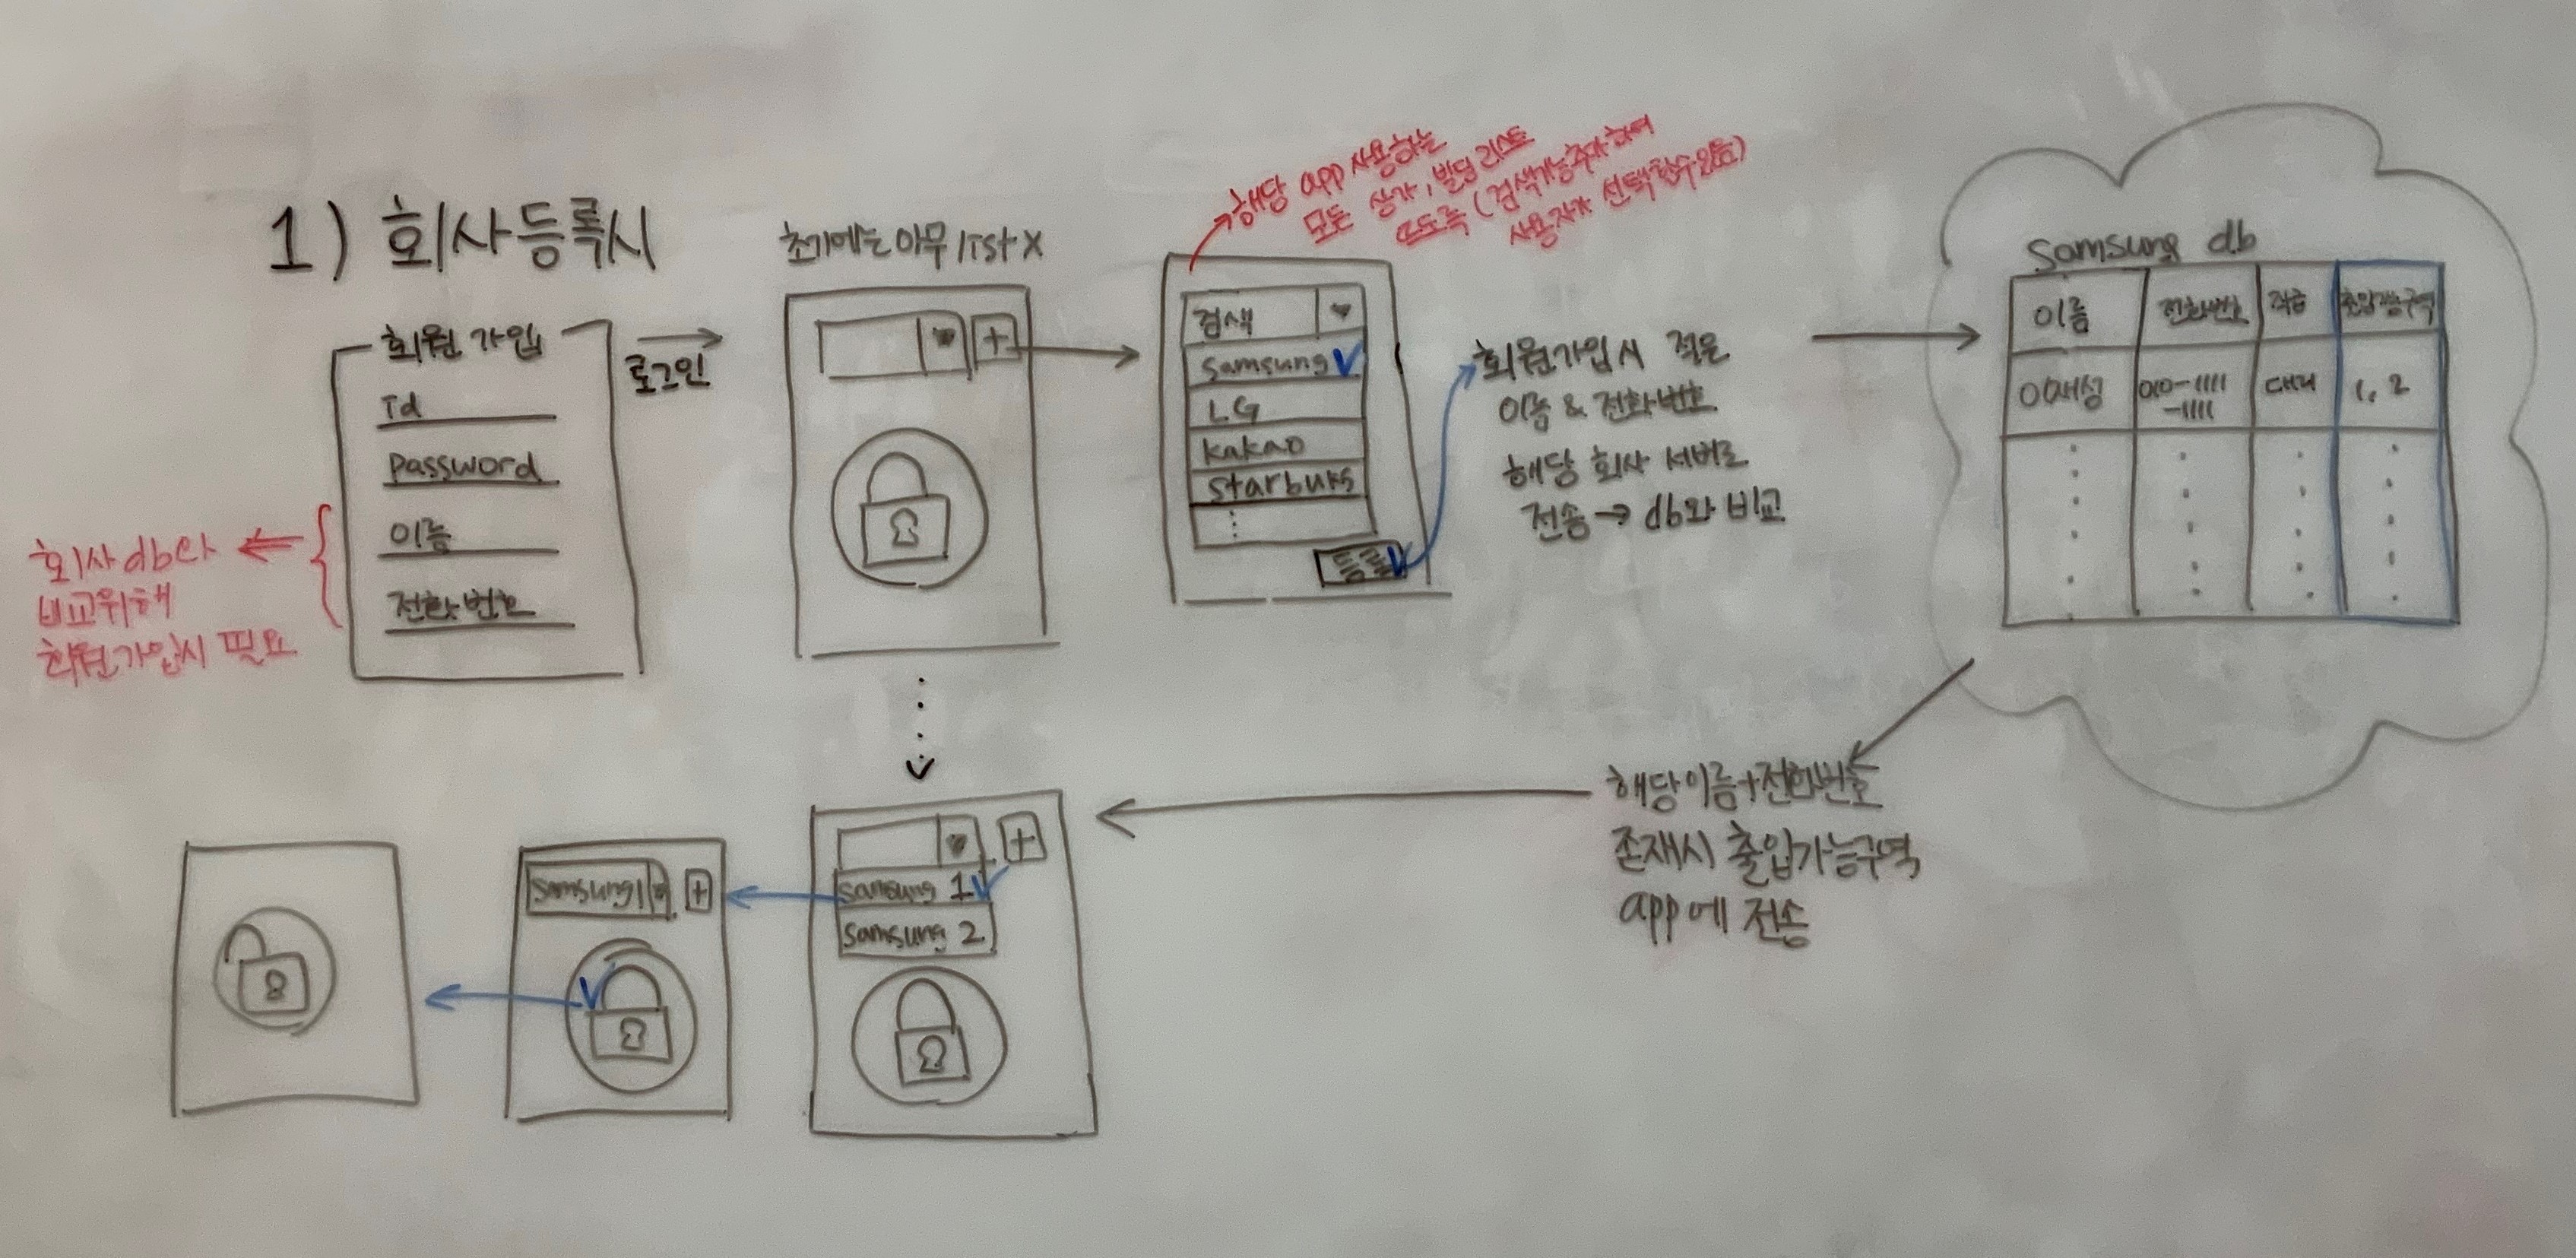 1) 회사등록시
회원 가입
Id
password
이름
전화번호
회사 db랑
비교위해
회원가입시 필요
로그인
초기에는 아무 list X
+
해당 app 사용하는
모든 상가, 빌딩 리스트
뜨도록 (검색기능추가하여
사용자가 선택할수있음)
검색
samsung
LG
kakao
starbuks
등록
회원가입시 적은
이름 & 전화번호
해당 회사 서버로
전송 → db와 비교
Samsung db
이름 전화번호 직급 출입가능구역
이재성 010-1111 대리 1, 2
-1111
해당이름+전화번호
존재시 출입가능구역
app에 전송
+
samsung 1
samsung 2
samsung1 +